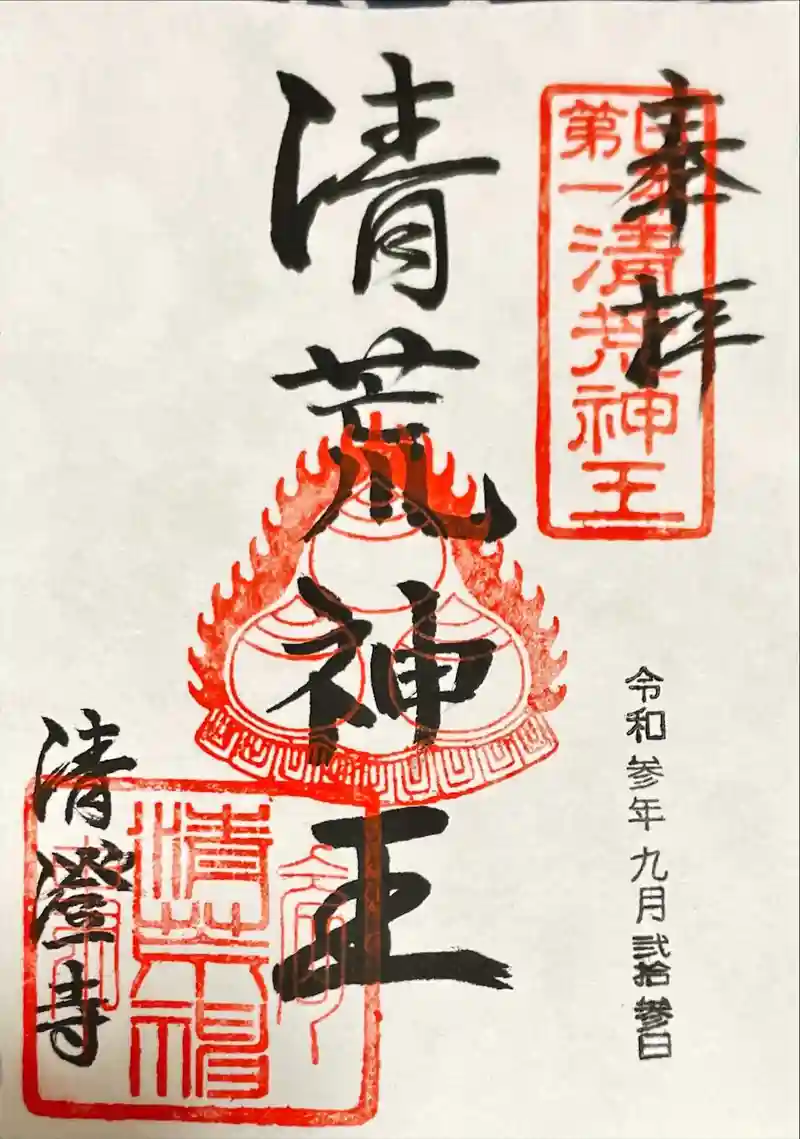 奉拝
日本
第一
清荒神王
清荒神王
令和参年九月弐拾参日
清澄寺
清荒神